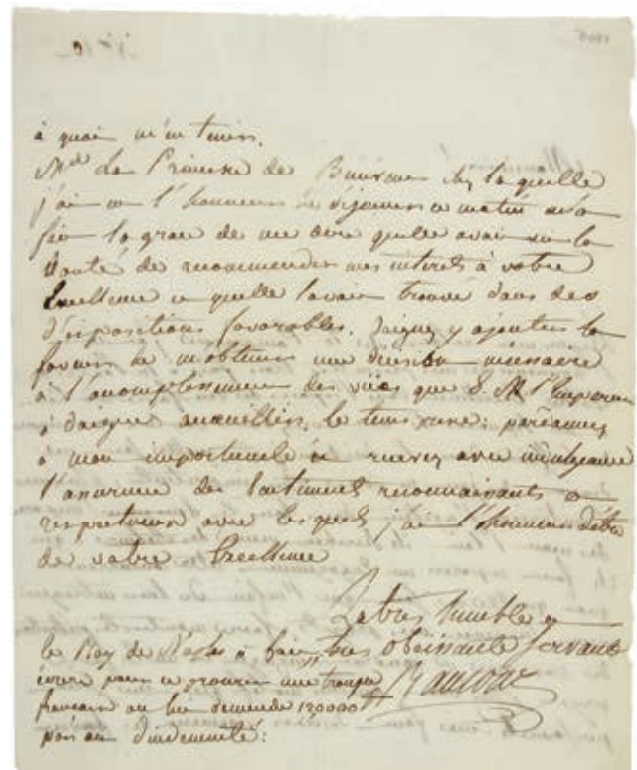 1806
à quoi m'en tenir.
Md La Princesse de chez laquelle
j'ai eu l'honneur de déjeuner ce matin m'a
fait la grace de me dire quelle avait eu la
bonté de recommander mes interets à votre
Excellence et quelle l'avait trouvé dans des
dispositions favorables. daignez y ajouter la
faveur de m'obtenir une décision nécessaire
à l'accomplissement des vües que S. M. l'Empereur
à daigné accueillir. le tems presse: pardonnez
à mon importunité et recevez avec indulgence
l'assurance des sentiments reconnaissants et
respectueux avec lesquels j'ai l'honneur d'être
de votre Excellence
La très humble et
très obeissante servante
Raucourt
le Roy de Naples à fait
écrire pour se procurer une troupe
française on lui demande 130000